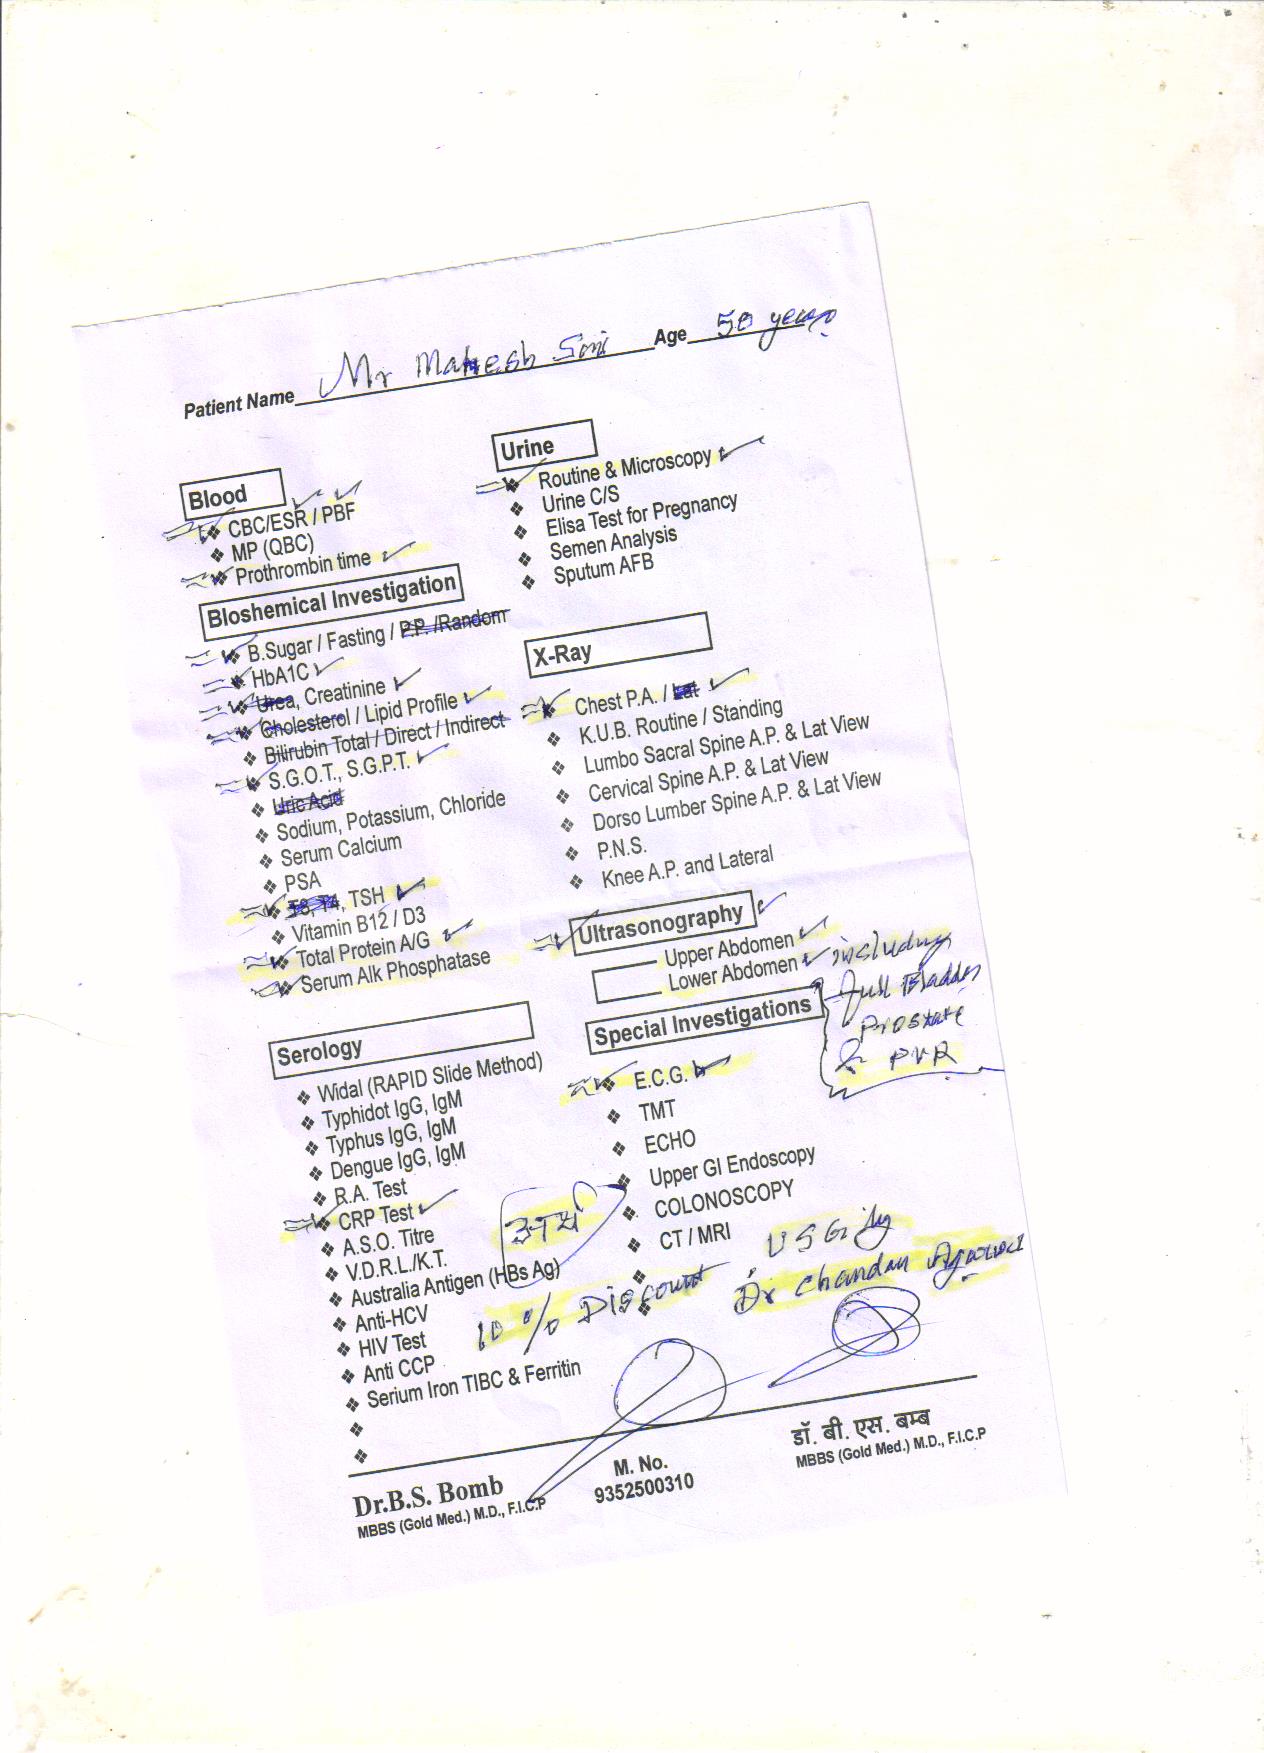 Patient Name Mr Mahesh Soni Age 50 years
Blood
CBC/ESR / PBF
MP (QBC)
Prothrombin time
Bloshemical Investigation
B.Sugar / Fasting / P.P. /Random
HbA1C
Urea, Creatinine
Cholesterol / Lipid Profile
Bilirubin Total / Direct / Indirect
S.G.O.T., S.G.P.T.
Uric Acid
Sodium, Potassium, Chloride
Serum Calcium
PSA
T3, T4, TSH
Vitamin B12 / D3
Total Protein A/G
Serum Alk Phosphatase
Serology
Widal (RAPID Slide Method)
Typhidot IgG, IgM
Typhus IgG, IgM
Dengue IgG, IgM
R.A. Test
CRP Test
A.S.O. Titre
V.D.R.L./K.T.
Australia Antigen (HBs Ag)
Anti-HCV
HIV Test
Anti CCP
Serium Iron TIBC & Ferritin
Urine
Routine & Microscopy
Urine C/S
Elisa Test for Pregnancy
Semen Analysis
Sputum AFB
X-Ray
Chest P.A. / Lat
K.U.B. Routine / Standing
Lumbo Sacral Spine A.P. & Lat View
Cervical Spine A.P. & Lat View
Dorso Lumber Spine A.P. & Lat View
P.N.S.
Knee A.P. and Lateral
Ultrasonography
Upper Abdomen
Lower Abdomen including
full Bladder
Prostate
& PVR
Special Investigations
E.C.G.
TMT
ECHO
Upper GI Endoscopy
COLONOSCOPY
CT / MRI
USG by
Dr Chandan Agarwal
10% Discount
Dr.B.S. Bomb
MBBS (Gold Med.) M.D., F.I.C.P
M. No.
9352500310
डॉ. बी. एस. बम्ब
MBBS (Gold Med.) M.D., F.I.C.P